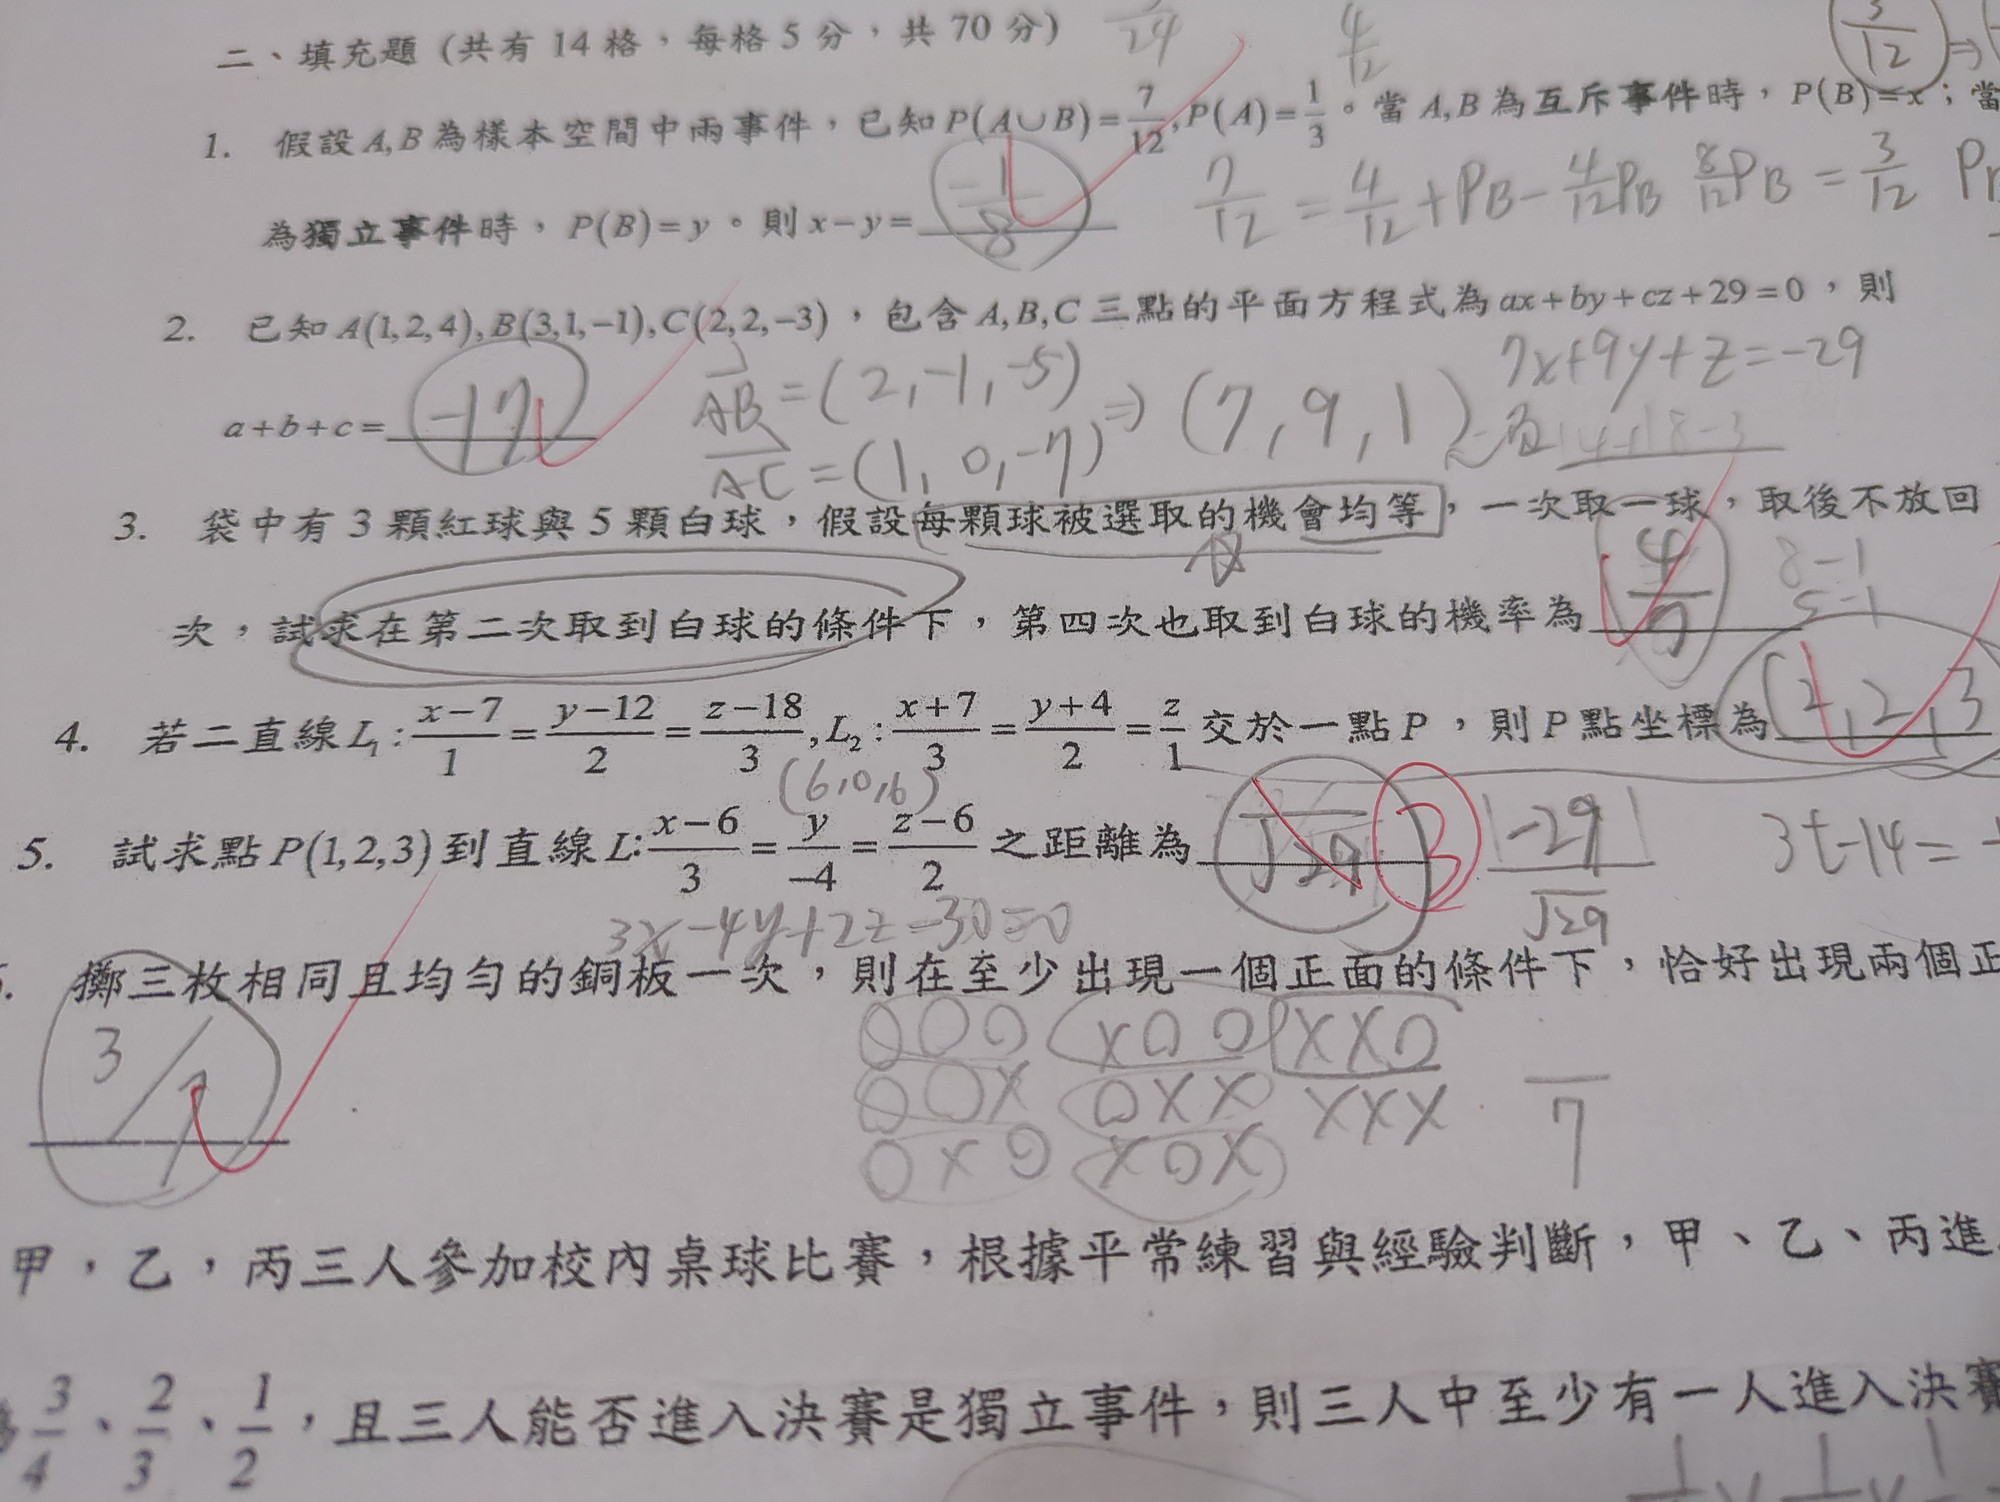 二、填充題 (共有 14 格，每格 5 分，共 70 分)
24
4/12
3/12 ⇒
1. 假設 A,B 為樣本空間中兩事件，已知 P(A∪B)=7/12, P(A)=1/3。當 A,B 為互斥事件時，P(B)=x；當
為獨立事件時，P(B)=y。則 x−y= -1/8
7/12 = 4/12 + PB - 4/12 PB 8/12 PB = 3/12
2. 已知 A(1,2,4), B(3,1,−1), C(2,2,−3)，包含 A,B,C 三點的平面方程式為 ax+by+cz+29=0，則
a+b+c= -17
AB = (2,-1,-5)
AC = (1,0,-7) ⇒ (7,9,1)
7x+9y+z=-29
14+18-3
3. 袋中有 3 顆紅球與 5 顆白球，假設每顆球被選取的機會均等，一次取一球，取後不放回
次，試求在第二次取到白球的條件下，第四次也取到白球的機率為 4/7
8-1
5-1
4. 若二直線 L₁: (x−7)/1 = (y−12)/2 = (z−18)/3, L₂: (x+7)/3 = (y+4)/2 = z/1 交於一點 P，則 P 點坐標為 (2,2,3
(6,0,6)
5. 試求點 P(1,2,3) 到直線 L: (x−6)/3 = y/−4 = (z−6)/2 之距離為 √29
3
|-29|/√29
3t-14=
3x-4y+2z-30=0
擲三枚相同且均勻的銅板一次，則在至少出現一個正面的條件下，恰好出現兩個正
3/7
OOO XOO XXO
OOX OXX XXX
OXO XOX
7
甲，乙，丙三人參加校內桌球比賽，根據平常練習與經驗判斷，甲、乙、丙進
3/4、2/3、1/2，且三人能否進入決賽是獨立事件，則三人中至少有一人進入決賽